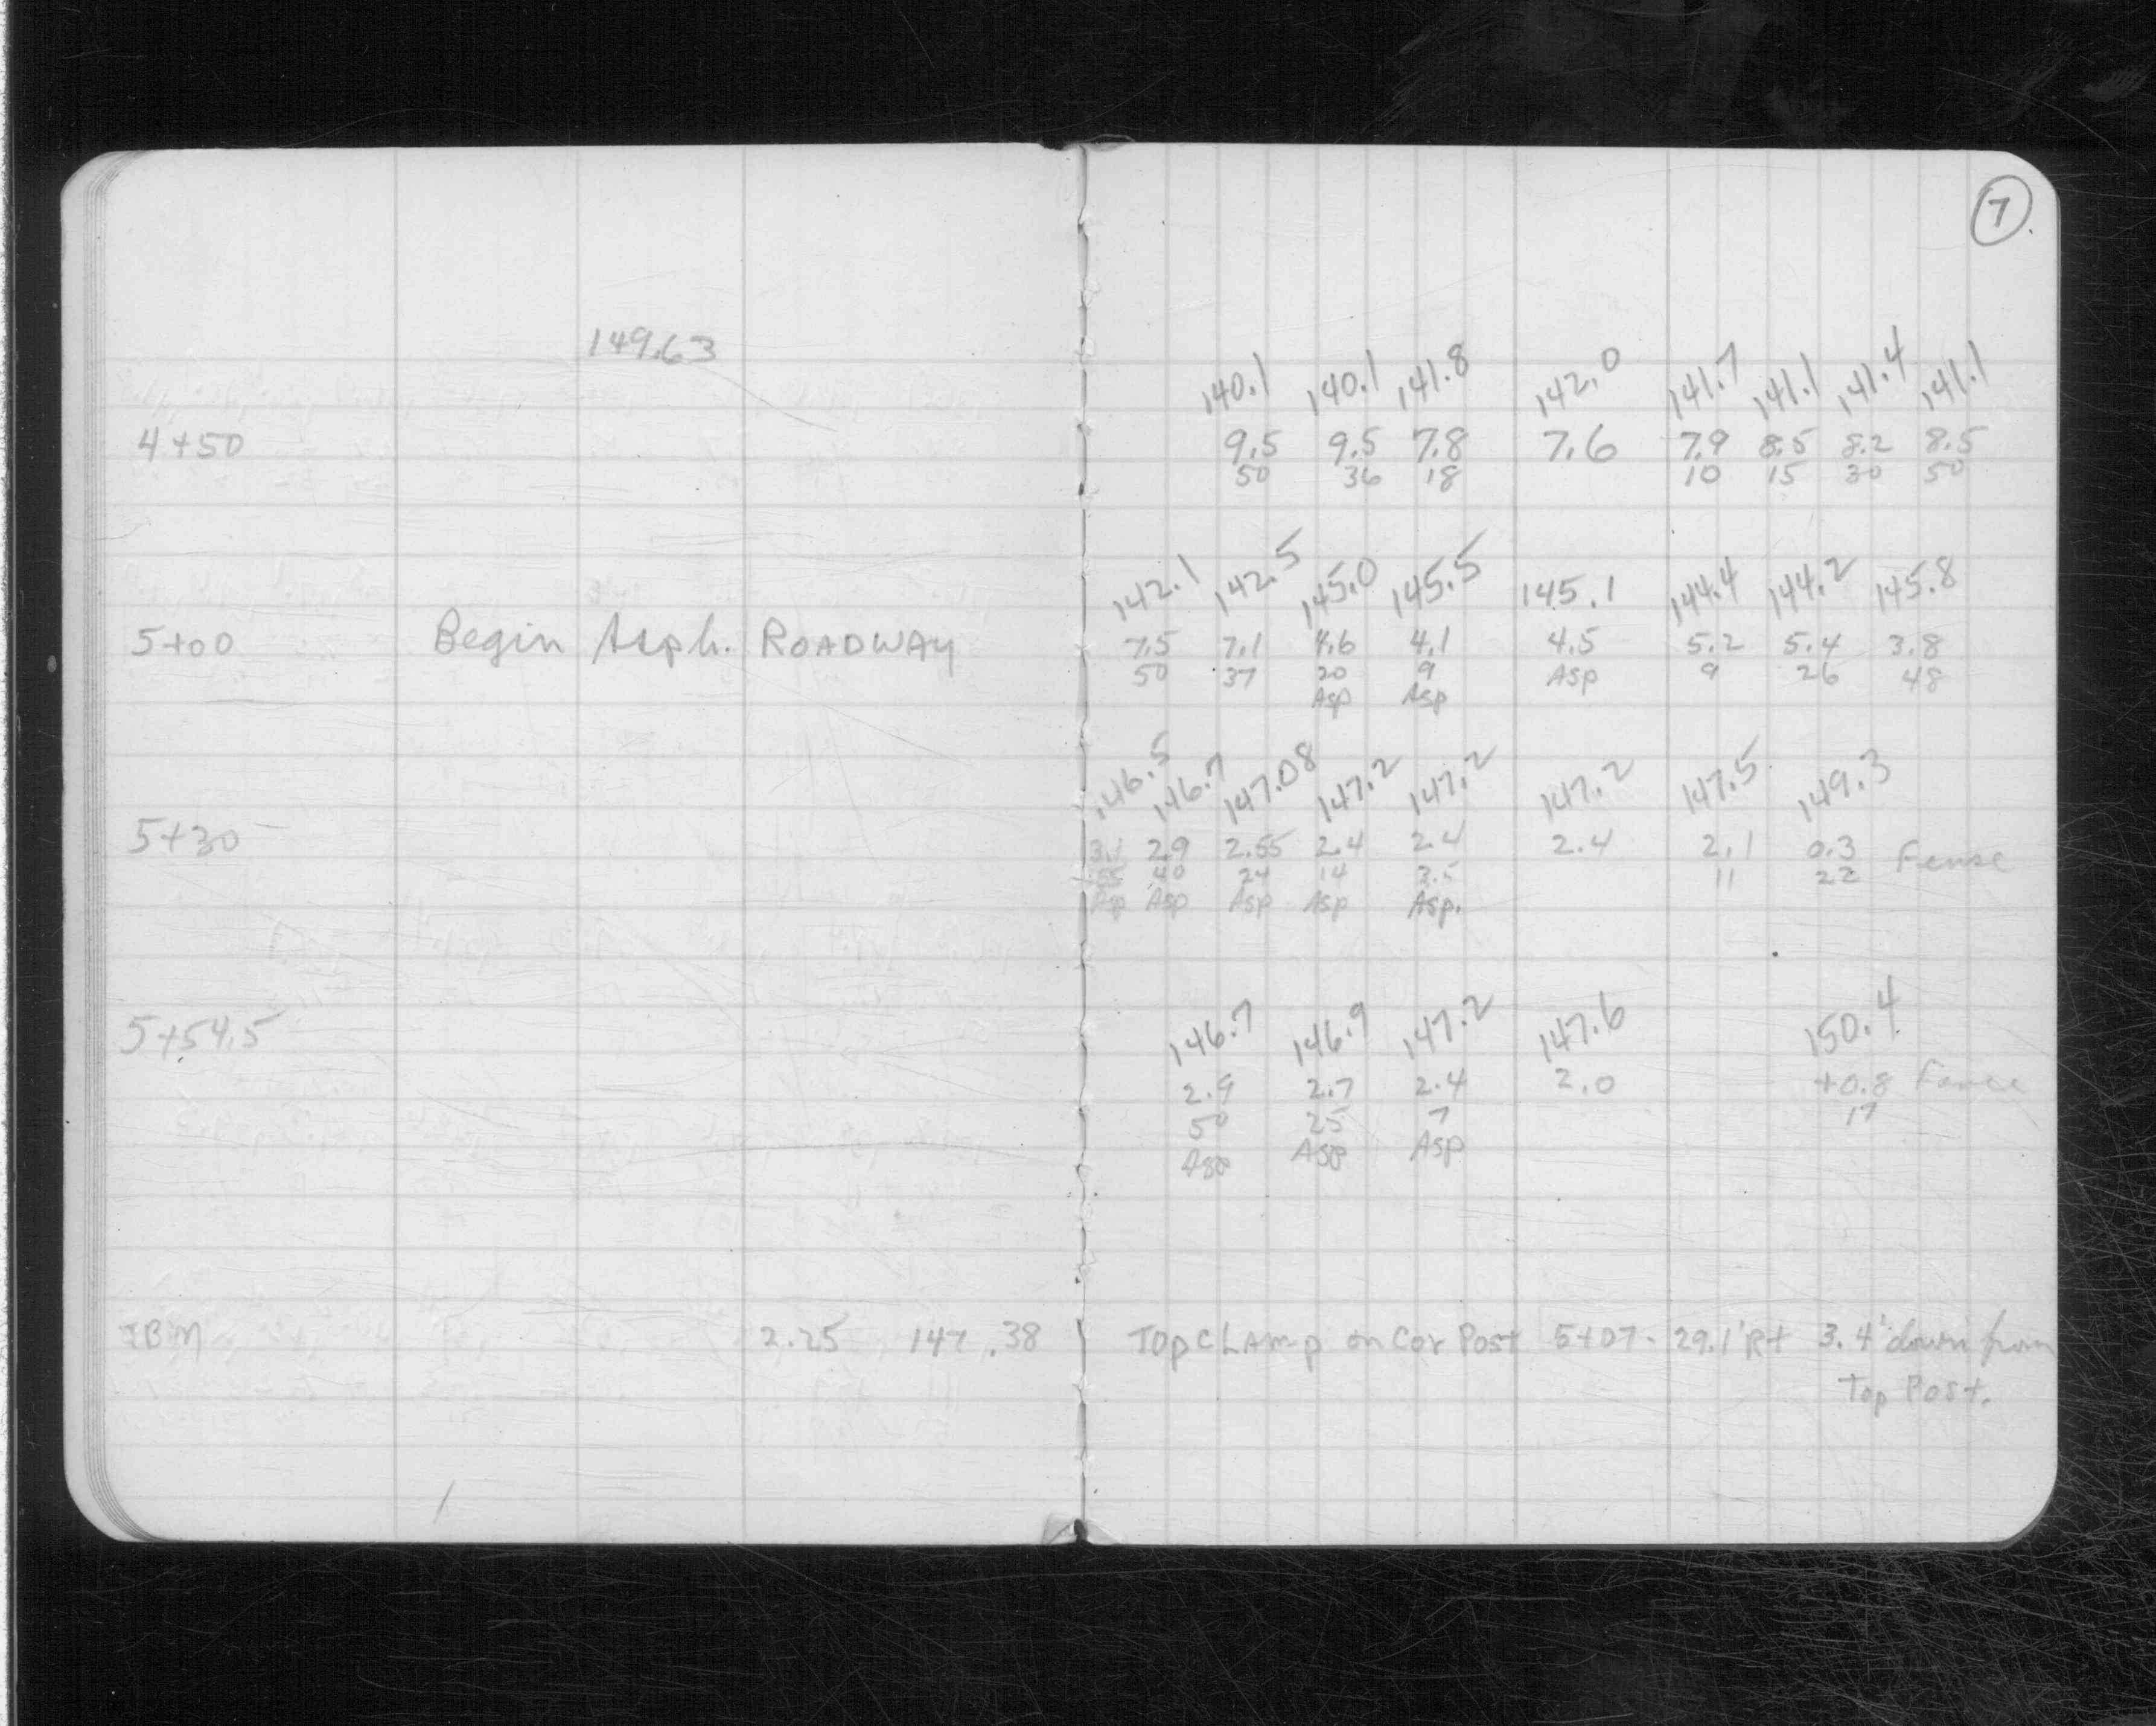 7
149.63
140.1 140.1 141.8 142.0 141.7 141.1 141.4 141.1
4+50 9.5 9.5 7.8 7.6 7.9 8.5 8.2 8.5
50 36 18 10 15 30 50
142.1 142.5 145.0 145.5 145.1 144.4 144.2 145.8
5+00 Begin Asph. ROADWAY 7.5 7.1 4.6 4.1 4.5 5.2 5.4 3.8
50 37 20 9 Asp 9 26 48
Asp Asp
146.5 146.7 147.08 147.2 147.2 147.2 147.5 149.3
5+30 2.9 2.55 2.4 2.4 2.4 2.1 0.3 Fense
40 24 14 3.5 11 22
Asp Asp Asp Asp Asp.
146.7 146.9 147.2 147.6 150.4
5+54.5 2.9 2.7 2.4 2.0 +0.8 Fence
50 25 7 17
Asp Asp Asp
TBM 2.25 147.38 Top CLAmp on Cor Post 5+07 - 29.1' Rt 3.4' down from
Top Post.